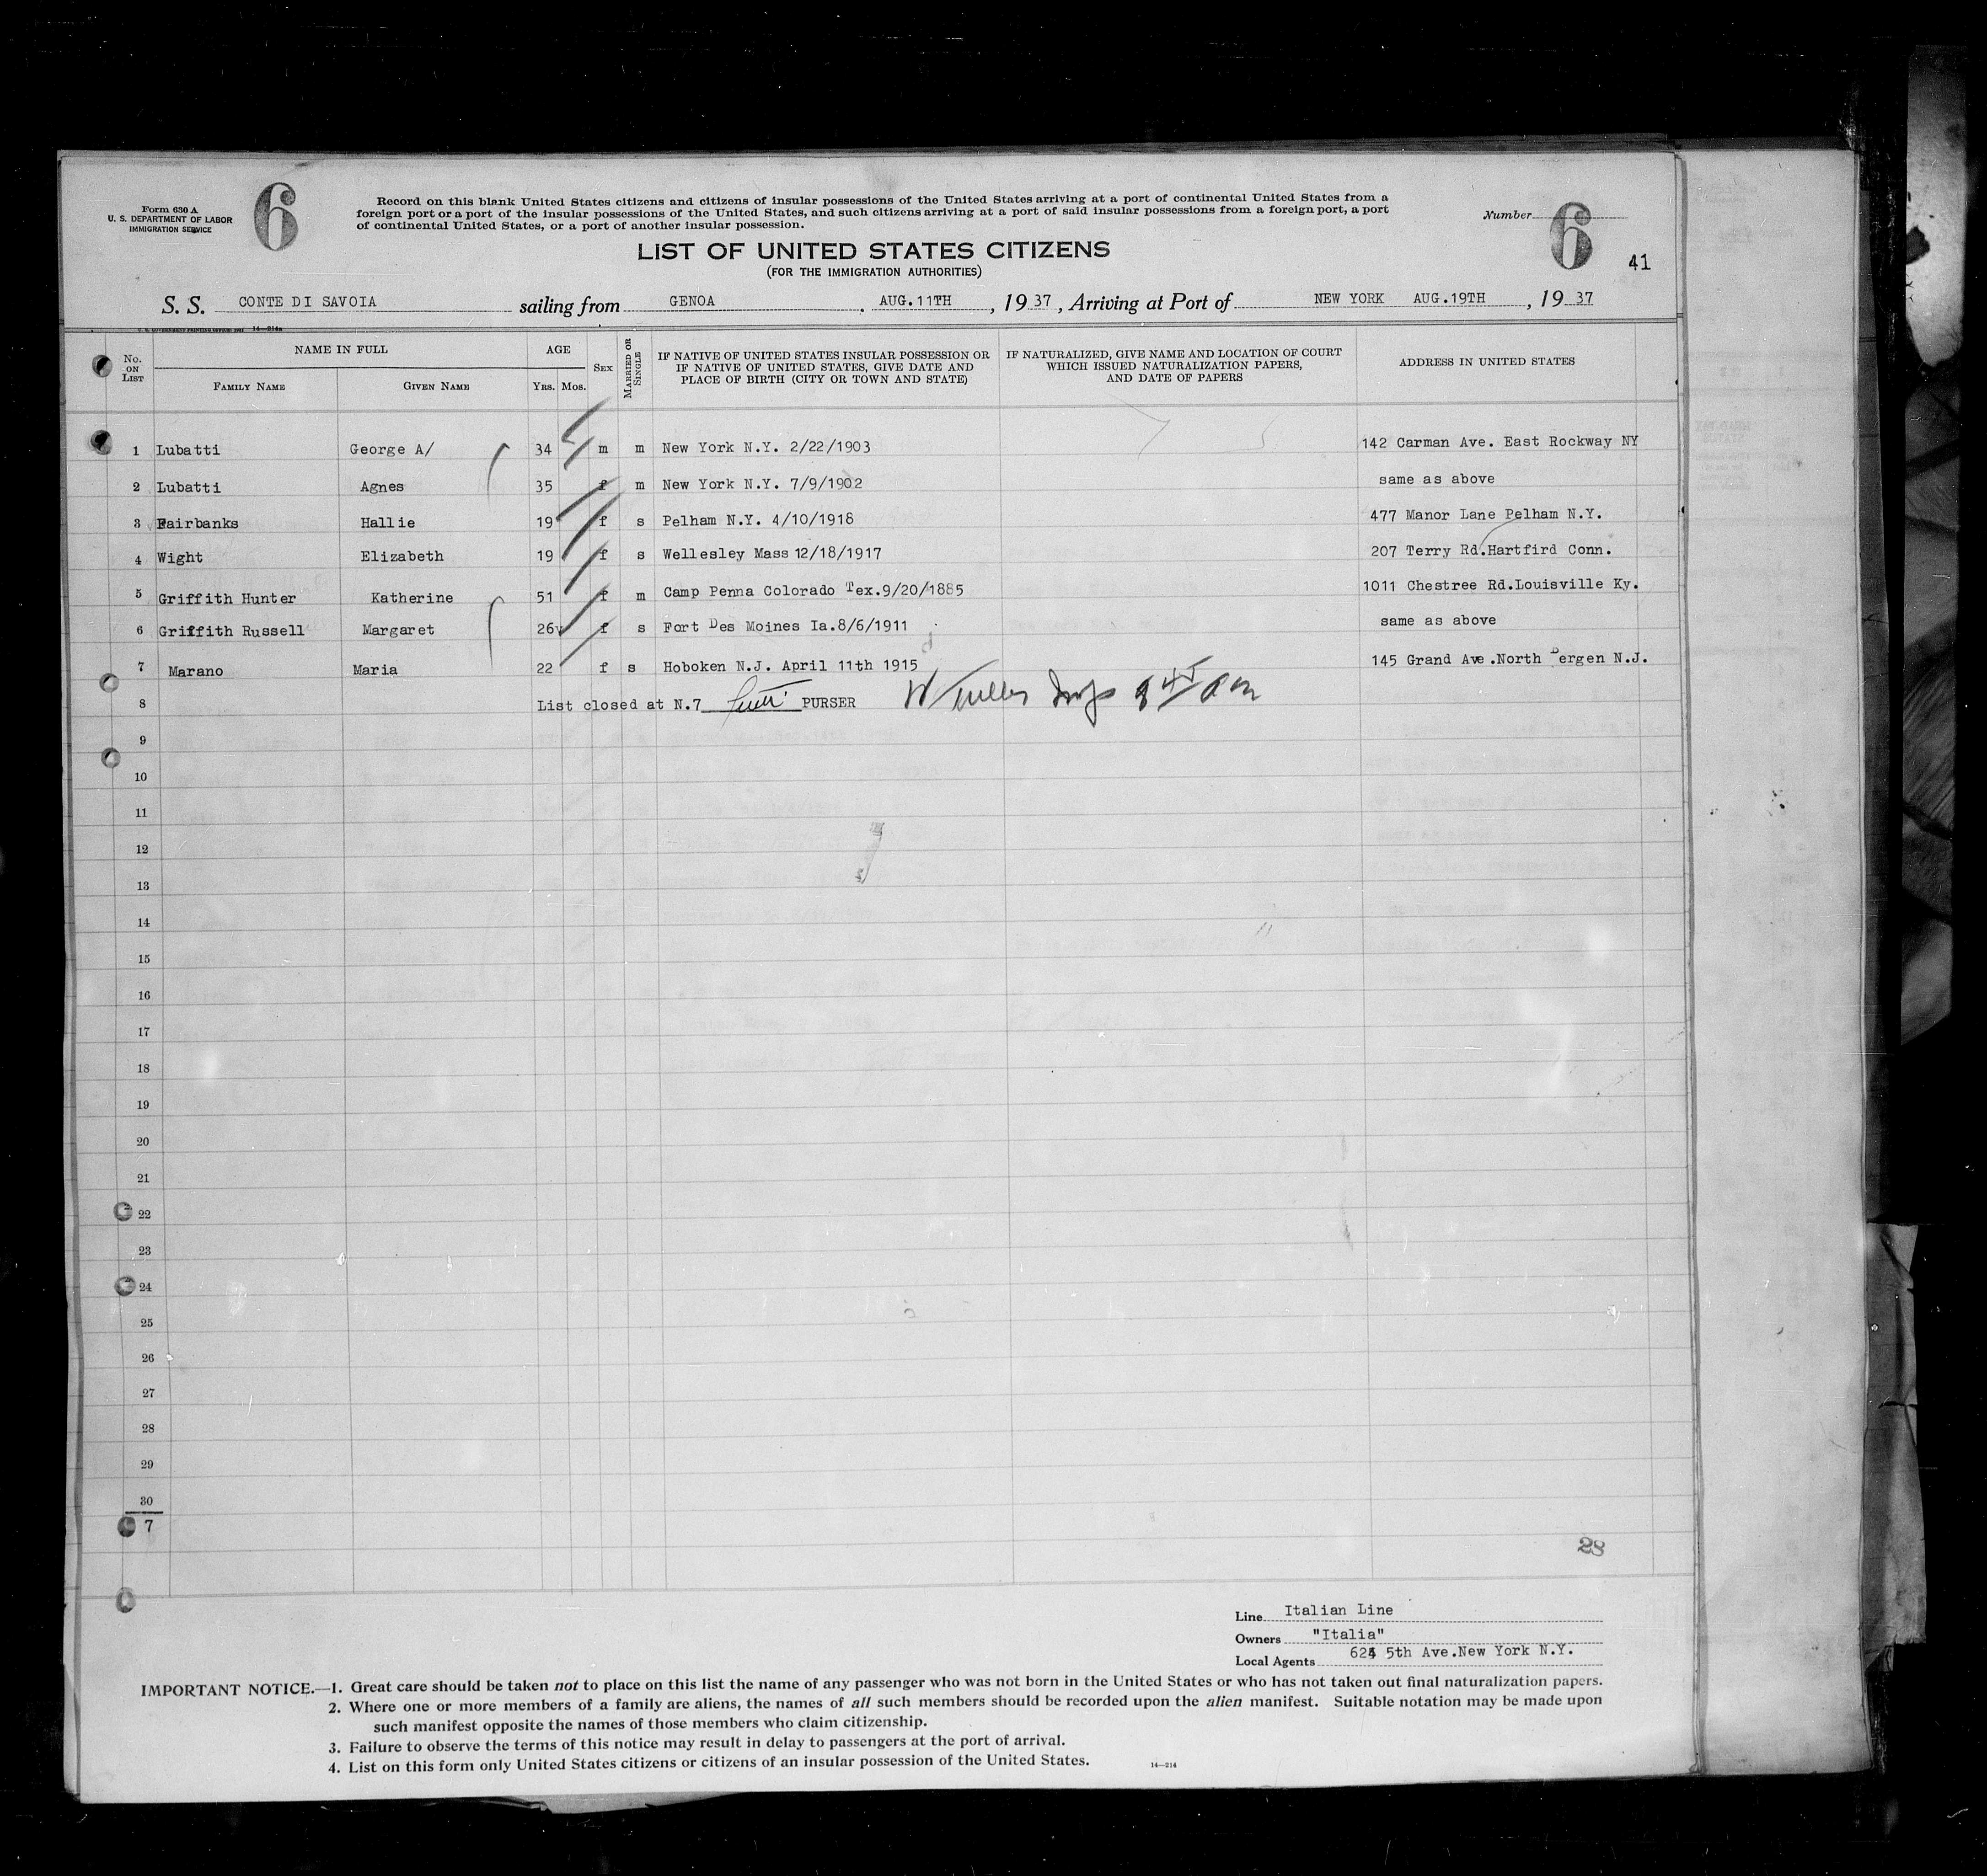 Form 630 A
U. S. DEPARTMENT OF LABOR
IMMIGRATION SERVICE
6
Record on this blank United States citizens and citizens of insular possessions of the United States arriving at a port of continental United States from a
foreign port or a port of the insular possessions of the United States, and such citizens arriving at a port of said insular possessions from a foreign port, a port
of continental United States, or a port of another insular possession.
Number
6
41
LIST OF UNITED STATES CITIZENS
(FOR THE IMMIGRATION AUTHORITIES)
S. S. CONTE DI SAVOIA sailing from GENOA . AUG.11TH , 19 37 , Arriving at Port of NEW YORK AUG.19TH , 19 37
No. ON LIST
NAME IN FULL
FAMILY NAME
GIVEN NAME
AGE
YRS. MOS.
SEX
MARRIED OR SINGLE
IF NATIVE OF UNITED STATES INSULAR POSSESSION OR
IF NATIVE OF UNITED STATES, GIVE DATE AND
PLACE OF BIRTH (CITY OR TOWN AND STATE)
IF NATURALIZED, GIVE NAME AND LOCATION OF COURT
WHICH ISSUED NATURALIZATION PAPERS,
AND DATE OF PAPERS
ADDRESS IN UNITED STATES
1 Lubatti George A/ 34 m m New York N.Y. 2/22/1903 142 Carman Ave. East Rockway NY
2 Lubatti Agnes 35 f m New York N.Y. 7/9/1902 same as above
3 Fairbanks Hallie 19 f s Pelham N.Y. 4/10/1918 477 Manor Lane Pelham N.Y.
4 Wight Elizabeth 19 f s Wellesley Mass 12/18/1917 207 Terry Rd.Hartfird Conn.
5 Griffith Hunter Katherine 51 f m Camp Penna Colorado Tex.9/20/1885 1011 Chestree Rd.Louisville Ky.
6 Griffith Russell Margaret 26 f s Fort Des Moines Ia.8/6/1911 same as above
7 Marano Maria 22 f s Hoboken N.J. April 11th 1915 145 Grand Ave.North Bergen N.J.
8 List closed at N.7 PURSER
9
10
11
12
13
14
15
16
17
18
19
20
21
22
23
24
25
26
27
28
29
30
7
28
Line Italian Line
Owners "Italia"
Local Agents 624 5th Ave.New York N.Y.
IMPORTANT NOTICE.—1. Great care should be taken not to place on this list the name of any passenger who was not born in the United States or who has not taken out final naturalization papers.
2. Where one or more members of a family are aliens, the names of all such members should be recorded upon the alien manifest. Suitable notation may be made upon
such manifest opposite the names of those members who claim citizenship.
3. Failure to observe the terms of this notice may result in delay to passengers at the port of arrival.
4. List on this form only United States citizens or citizens of an insular possession of the United States.
14—214